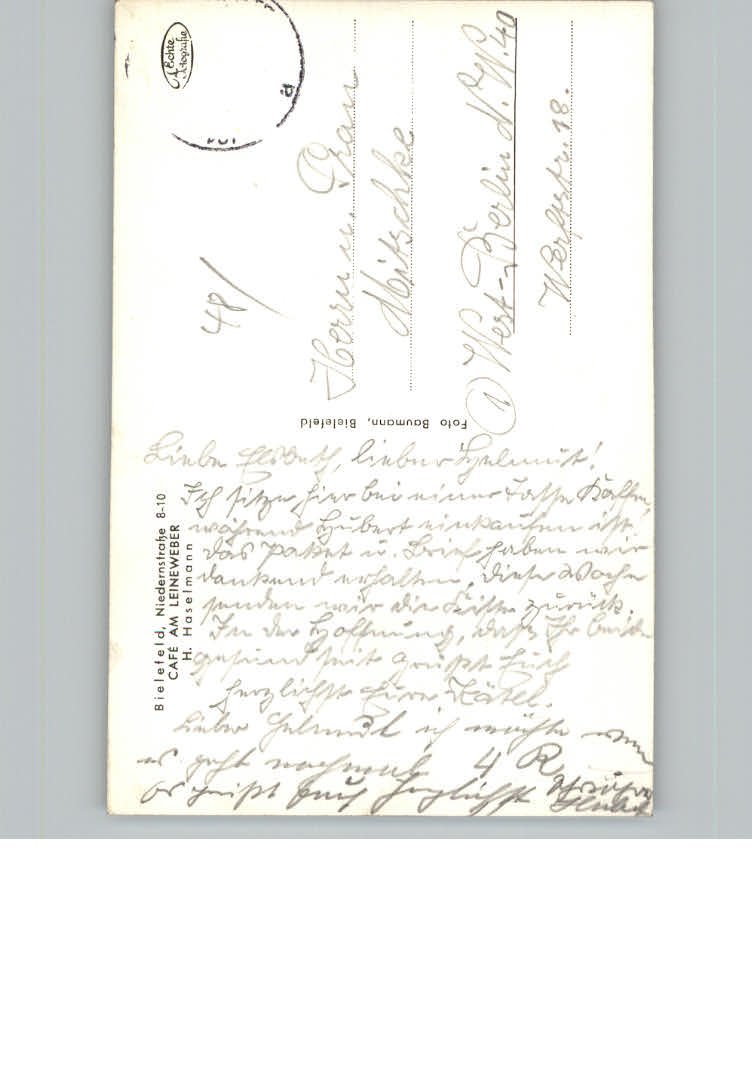 Echte Fotografie
48/
Herrn u. Frau
Mitschke
(1) West-Berlin N.W.40
Werftstr. 18.
Foto Baumann, Bielefeld
Bielefeld, Niedernstraße 8-10
CAFÉ AM LEINEWEBER
H. Haselmann
Liebe Elsbeth, lieber Helmut!
Ich sitze hier bei einer Tasse Kaffee,
während Hubert einkaufen ist.
Das Paket u. Brief haben wir
dankend erhalten, diese Woche
senden wir die Kiste zurück.
In der Hoffnung, daß Ihr beide
gesund seit grüßt Euch
herzlichst Eure Kätel.
Lieber Helmut ich möchte
es geht nochmal 4 R
Es grüßt Euch herzlichst